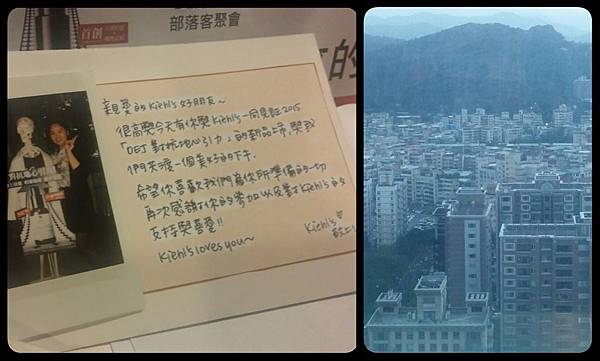 部落客聚會
首創
的
親愛的Kiehl's好朋友~
很高興今天有你與Kiehl's一同見證2015
「DEJ對抗地心引力」的新品上市,與我
們共渡一個美好的下午。
希望你喜歡我們為你所準備的一切
再次感謝你的參加以及對Kiehl's的
支持與喜愛!!
Kiehl's loves you~
Kiehl's
敬上